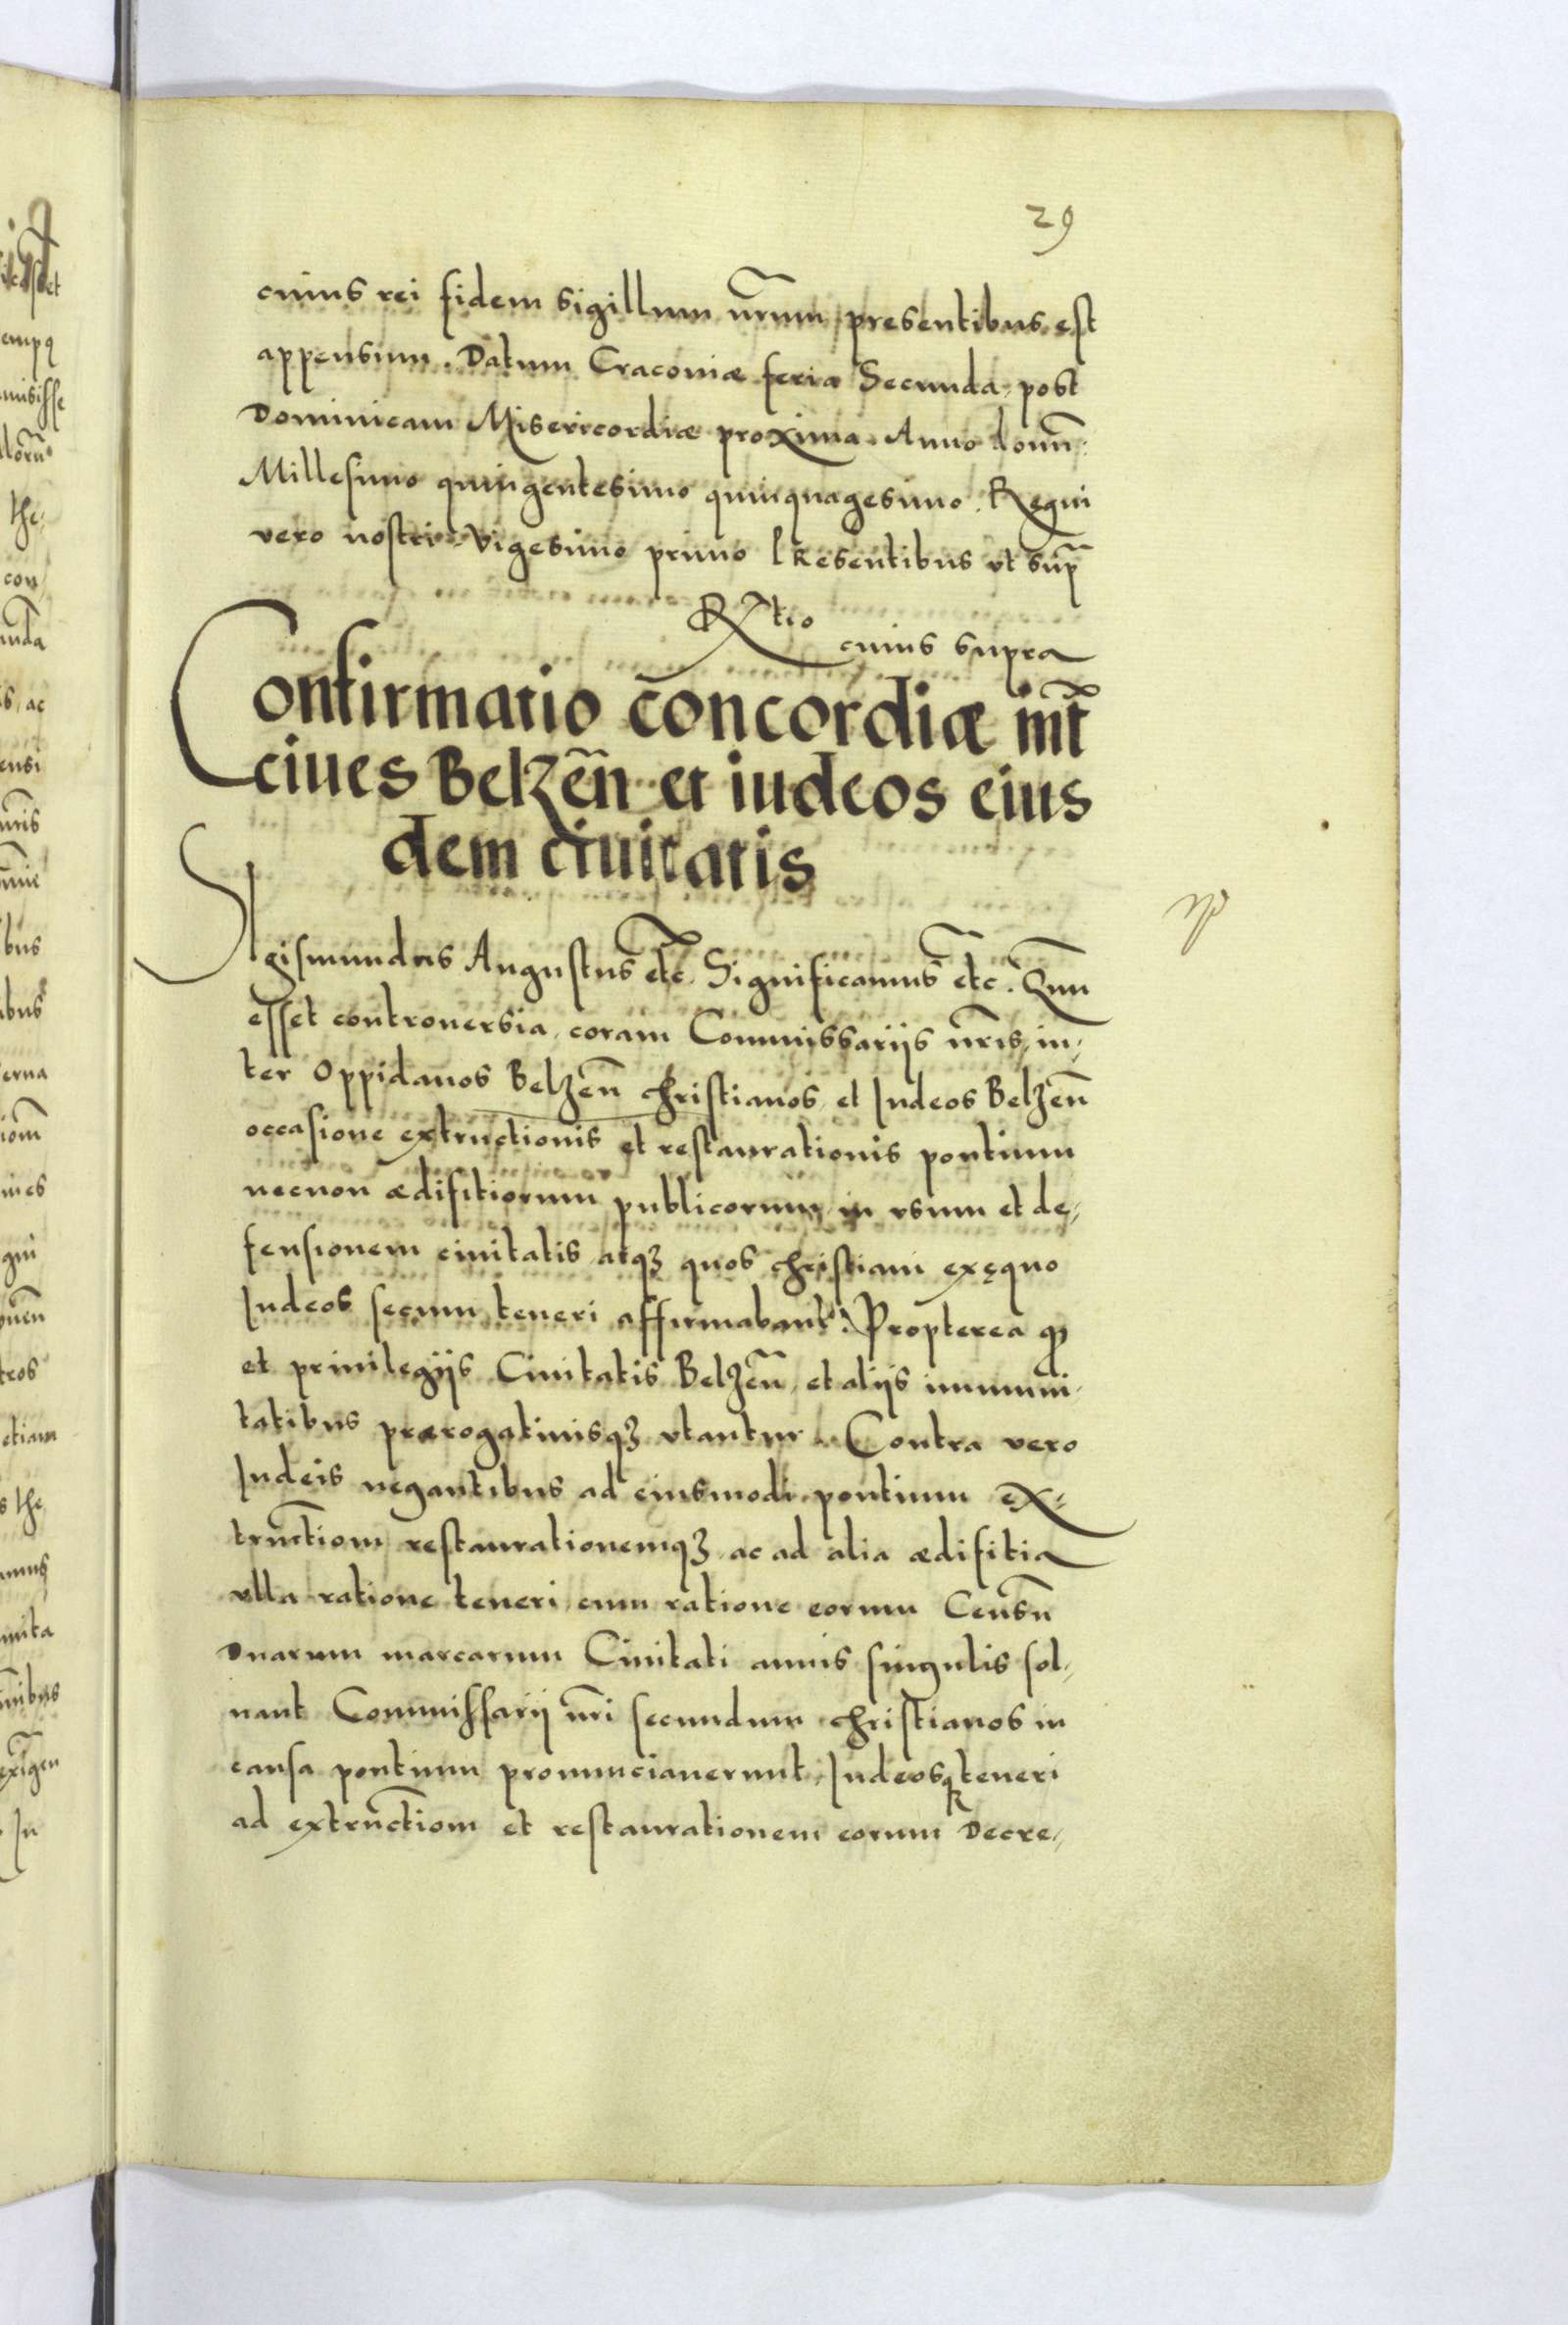 29
cuius rei fidem sigillum nr̃um presentibus est
appensum. Datum Cracoviæ feria Secunda post
Dominicam Misericordiæ proxima. Anno domñ:
Millesimo quingentesimo quinquagesimo. Regni
vero nostri Vigesimo primo presentibus vt sup̃
R̃tio
cuius supra
Confirmatio concordiæ int̃
ciues Belzeñ et iudeos eius
dem ciuitatis
Sigismundus Augustus etc̃. Significamus etc̃. Quũ
esset controuersia coram Commissarijs nr̃is, in-
ter Oppidanos Belzeñ christianos et Iudeos Belzeñ
occasione extructionis et restaurationis pontium
necnon ædifitiorum publicorum in vsum et de-
fensionem ciuitatis, atqꝫ quos christiani exęquo
Iudeos secum teneri affirmabant. Propterea ꝙ
et priuilegijs Ciuitatis Belzeñ, et alijs immuni-
tatibus prærogatiuisqꝫ vtantur. Contra vero
Iudeis negantibus ad eiusmodi pontium ex-
tructiom̃ restaurationemqꝫ ac ad alia ædifitia
vlla ratione teneri, cum ratione eorum Censũ
duarum marcarum Ciuitati annis singulis sol-
uant Commissarij nr̃i secundum christianos in
causa pontium pronunciauerunt, Iudeosqꝫ teneri
ad extructiom̃ et restaurationem eorum Decre-